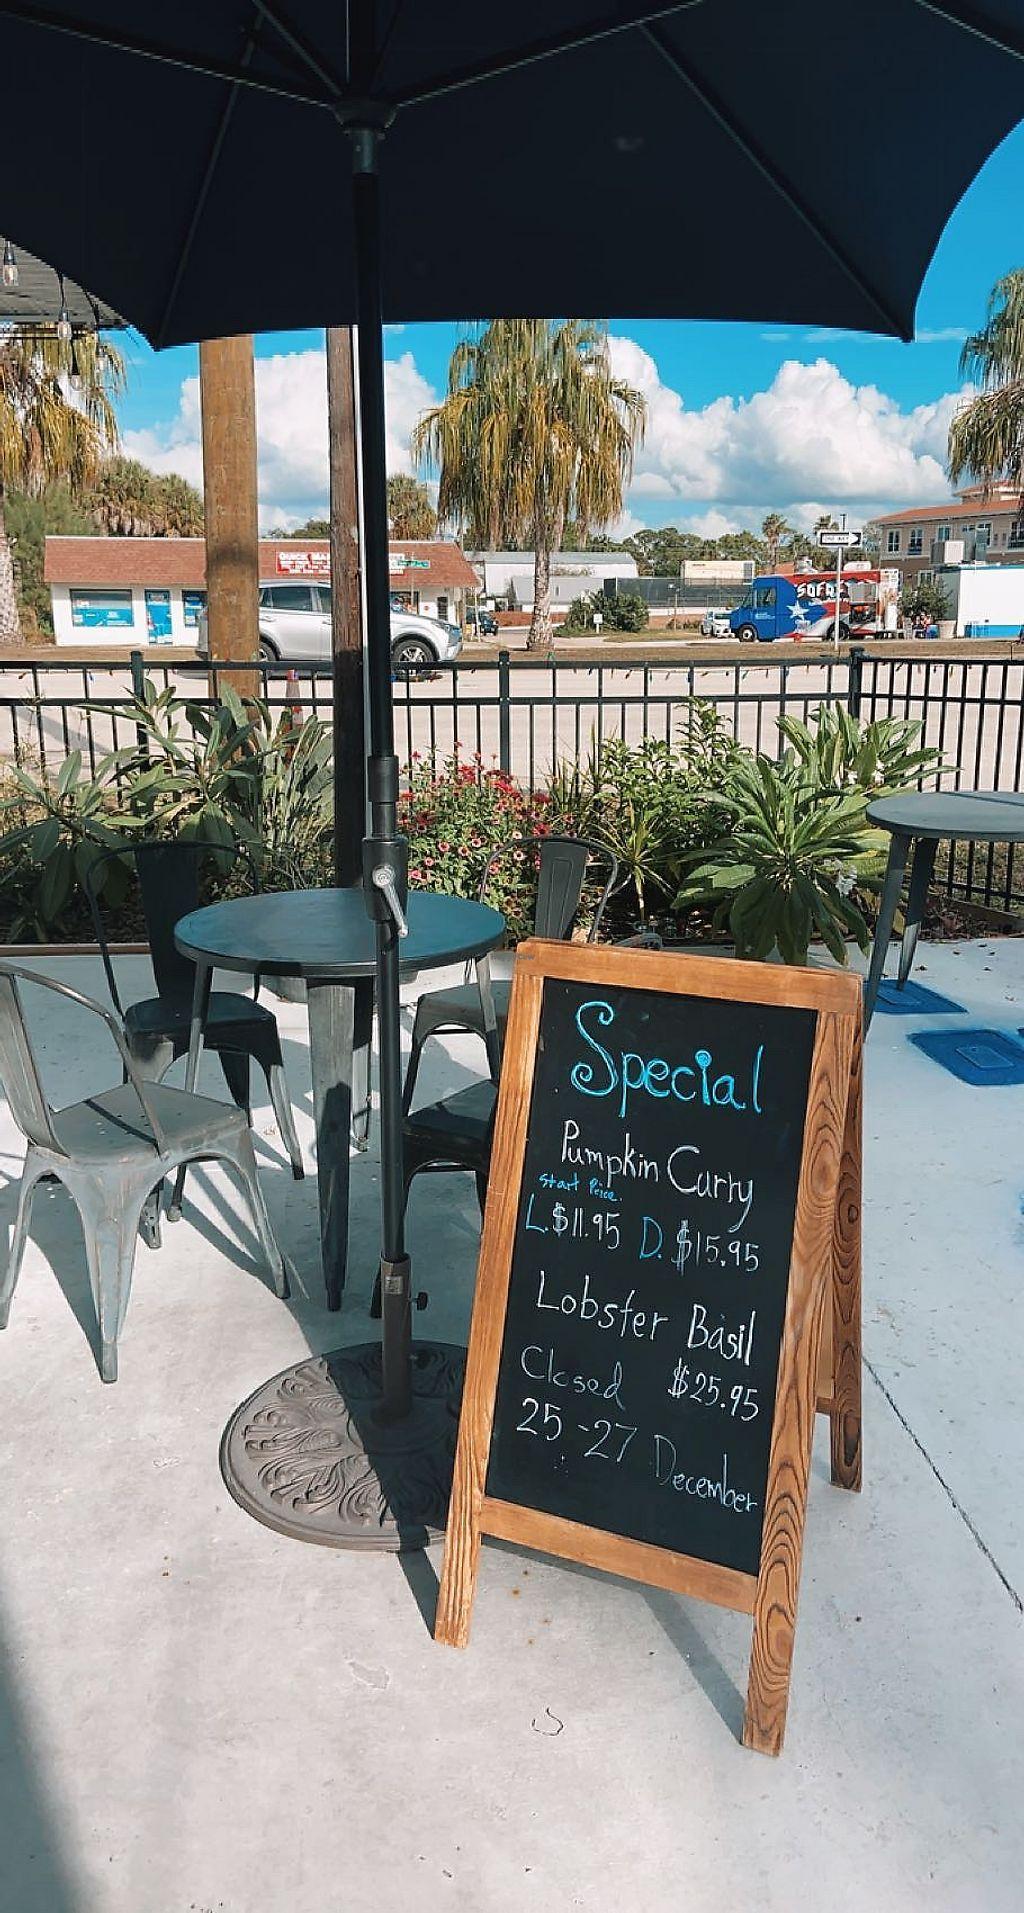 QUICK MA
ONE WAY
Special
Pumpkin Curry
Start Price.
L.$11.95 D.$15.95
Lobster Basil
Closed $25.95
25-27 December